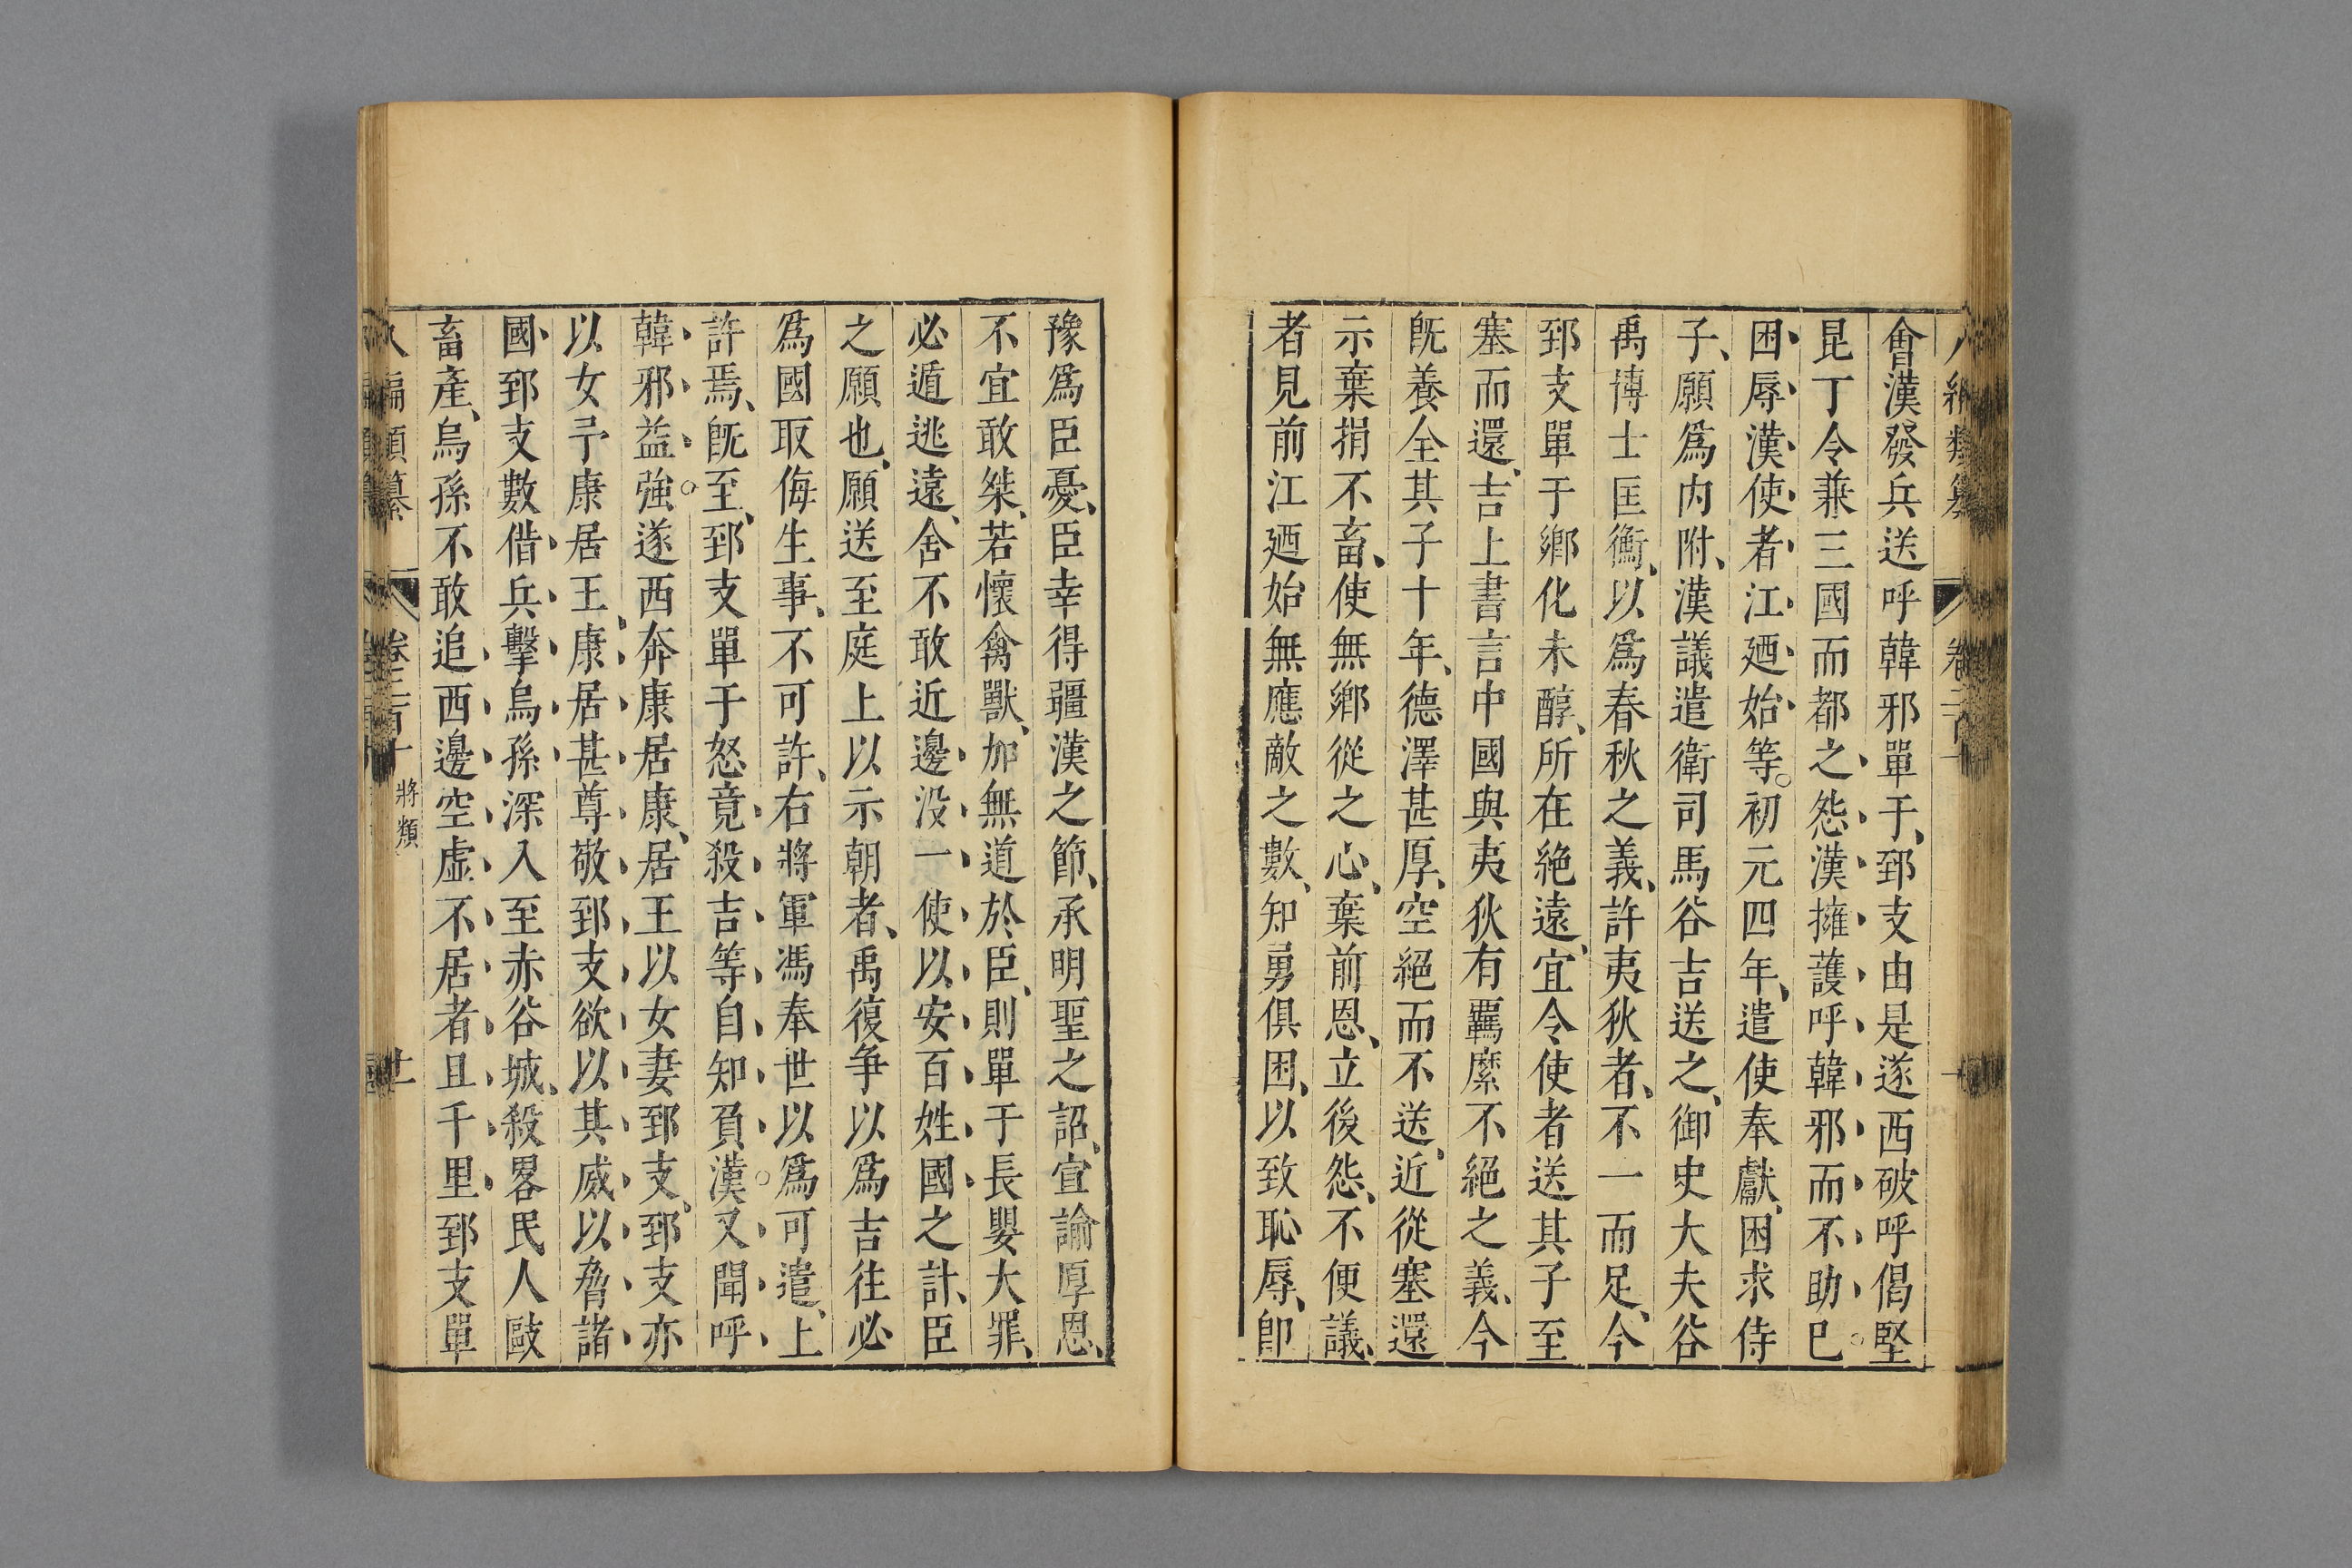 會漢發兵送呼韓邪單于、郅支由是遂西破呼偈堅
昆丁令兼三國而都之、怨漢擁護呼韓邪而不助巳。
困辱漢使者江廼始等。初元四年、遣使奉獻、因求侍
子、願爲内附、漢議遣衛司馬谷吉送之、御史大夫谷
禹博士匡衡、以爲春秋之義、許夷狄者、不一而足、今
郅支單于鄉化未醇、所在絕遠、宜令使者送其子至
塞而還、吉上書言中國與夷狄有羈縻不絕之義、今
旣養全其子十年、德澤甚厚、空絕而不送、近從塞還
示棄捐不畜、使無鄉從之心、棄前恩、立後怨、不便議、
者見前江廼始無應敵之數、知勇俱困、以致恥辱、卽
豫爲臣憂、臣幸得彊漢之節、承明聖之詔、宣諭厚恩、
不宜敢桀、若懷禽獸、加無道於臣、則單于長嬰大罪、
必遁逃遠、舍不敢近邊、没一使以安百姓、國之計、臣
之願也、願送至庭上以示朝者、禹復爭以爲吉往必
爲國取侮生事、不可許、右將軍馮奉世以爲可遣、上
許焉、旣至、郅支單于怒竟殺吉等、自知負漢。又聞呼
韓邪益強。遂西奔康居康、居王以女妻郅支、郅支亦
以女予康居王、康居甚尊敬郅支欲以其威以脅諸
國、郅支數借兵擊烏孫深入至赤谷城、殺畧民人歐
畜產、烏孫不敢追西邊空虛不居者且千里郅支單
編類纂 卷二百十 將類 廿一